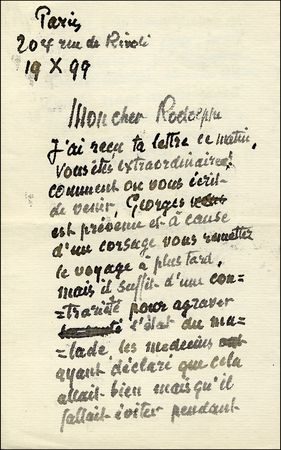 Paris,
204 rue de Rivoli
19 X 99
Mon cher Rodolphe
J'ai reçu ta lettre ce matin,
Vous êtes extraordinaires,
comment on vous écrit
de venir, Georges vous
est prévenu et à cause
d'un corsage vous remettez
le voyage à plus tard,
mais il suffit d'une con-
-trariété pour agraver
l'état du ma-
-lade les medecins
ayant déclaré que cela
allait bien mais qu'il
fallait éviter pendant